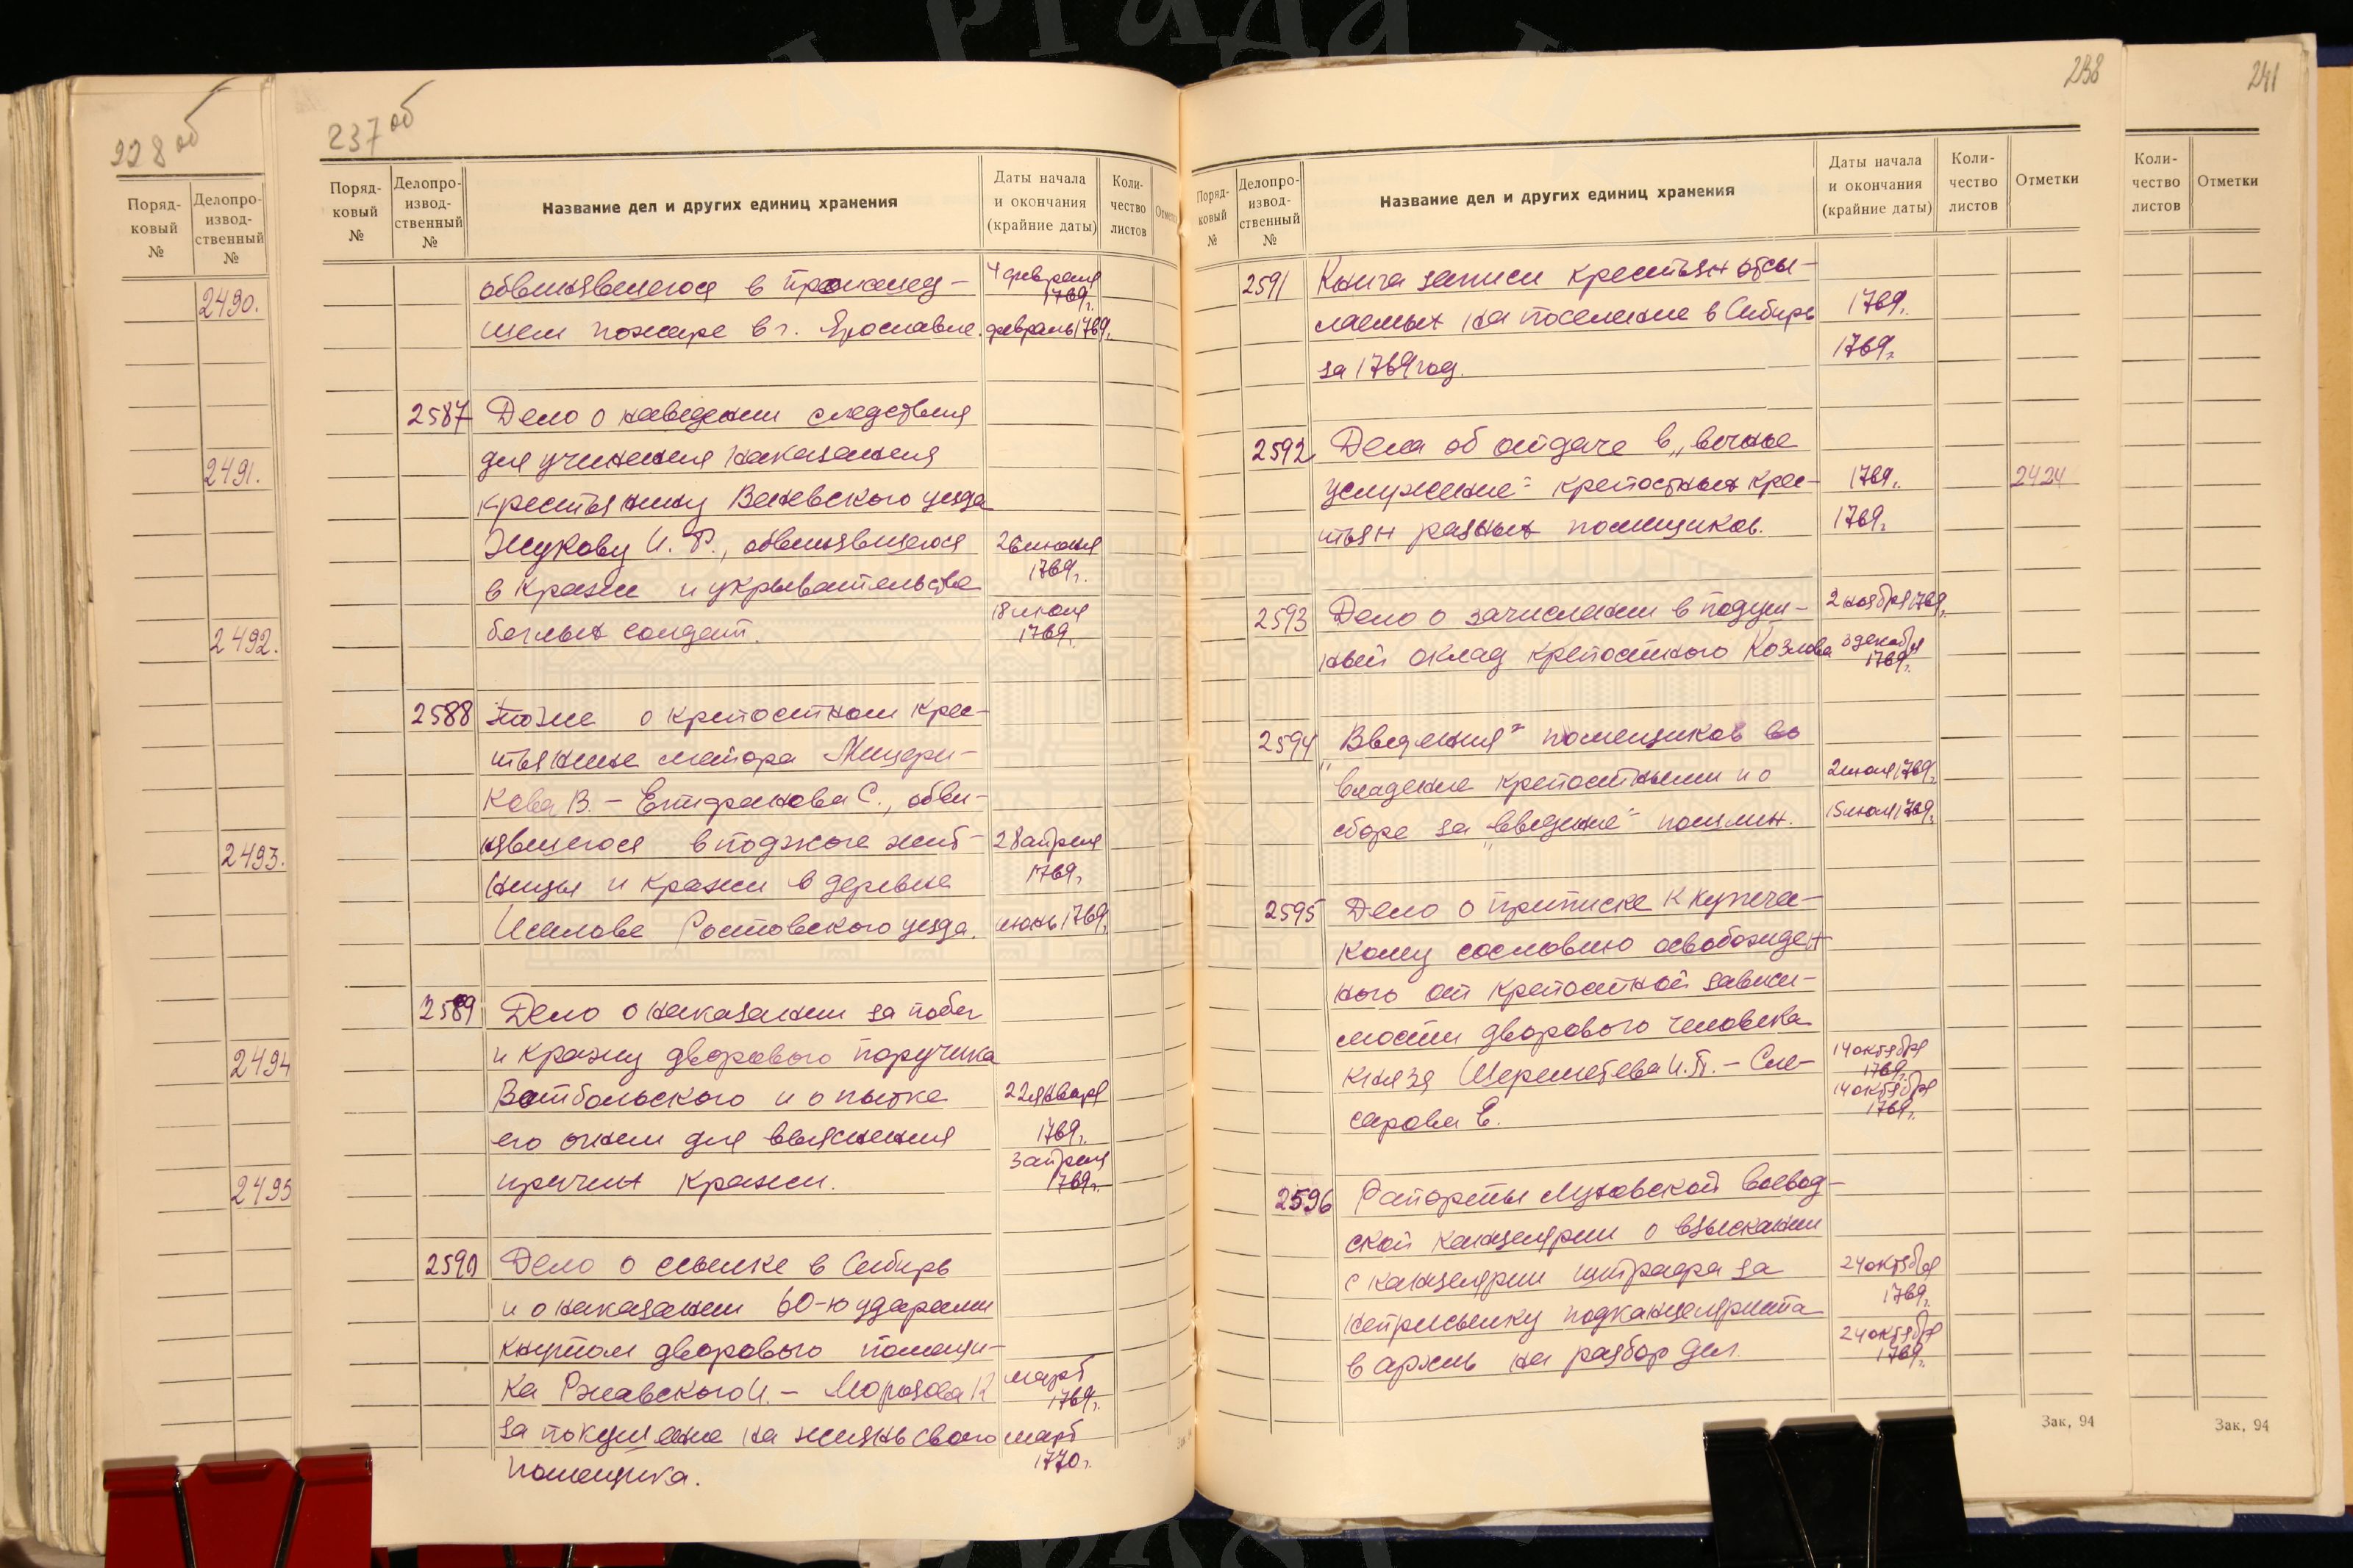 228 об
Поряд-
ковый
№
Делопро-
извод-
ственный
№
2490.
2491.
2492.
2493.
2494
2495
237 об
Поряд-
ковый
№
Делопро-
извод-
ственный
№
Название дел и других единиц хранения
Даты начала
и окончания
(крайние даты)
Коли-
чество
листов
обвинявшегося в происшед-
шем пожаре в г. Ярославле.
4 февраля
1769г.
февраль 1769г.
2587 Дело о наведении следствия
для учинения наказания
крестьянину Веневского уезда
Жукову И. Ф., обвинявшегося
в краже и укрывательстве
беглых солдат.
26 июня
1769г.
18 июля
1769г.
2588 Тоже о крепостном крес-
тьянине майора Мещери-
кова В. – Епифанова С., обви-
нявшегося в поджоге жит-
ницы и кражи в деревне
Исаково Ростовского уезда.
28 апреля
1769г.
июнь 1769г.
2589 Дело о наказании за побег
и кражу дворового поручика
Ватбольского и о пытке
его огнем для выяснения
причин кражи.
22 января
1769г.
3 апреля
1769г.
2590 Дело о ссылке в Сибирь
и о наказании 60-ю ударами
кнутом дворового помещи-
ка Ржавского И. – Морозова К
за покушение на жизнь своего
помещика.
март
1769г.
март
1770г.
238
Поряд-
ковый
№
Делопро-
извод-
ственный
№
Название дел и других единиц хранения
Даты начала
и окончания
(крайние даты)
Коли-
чество
листов
Отметки
2591 Книга записи крестьян отсы-
лаемых на поселение в Сибирь
за 1769 год.
1769г.
1769г.
2592 Дела об отдаче в „вечное
услужение" крепостных крес-
тьян разных помещиков.
1769г.
1769г.
2424
2593 Дело о зачислении в подуш-
ный оклад крепостного Козлова
2 ноября 1769г.
3 декабря
1769г.
2594 „Введения" помещиков во
владение крепостными и о
сборе за „введение" пошлин.
2 июля 1769г.
15 июля 1769г.
2595 Дело о приписке к купечес-
кому сословию освобожден
ного от крепостной зависи-
мости дворового человека
князя Шереметева И.П. – Сле-
сарова Е.
14 октября
1769г.
14 октября
1769г.
2596 Рапорты Луховской воевод-
ской канцелярии о взыскании
с канцелярии штрафа за
неприсылку подканцеляриста
в архив на разбор дел.
24 октября
1769г.
24 октября
1769г.
Зак, 94
241
Коли-
чество
листов
Отметки
Зак, 94